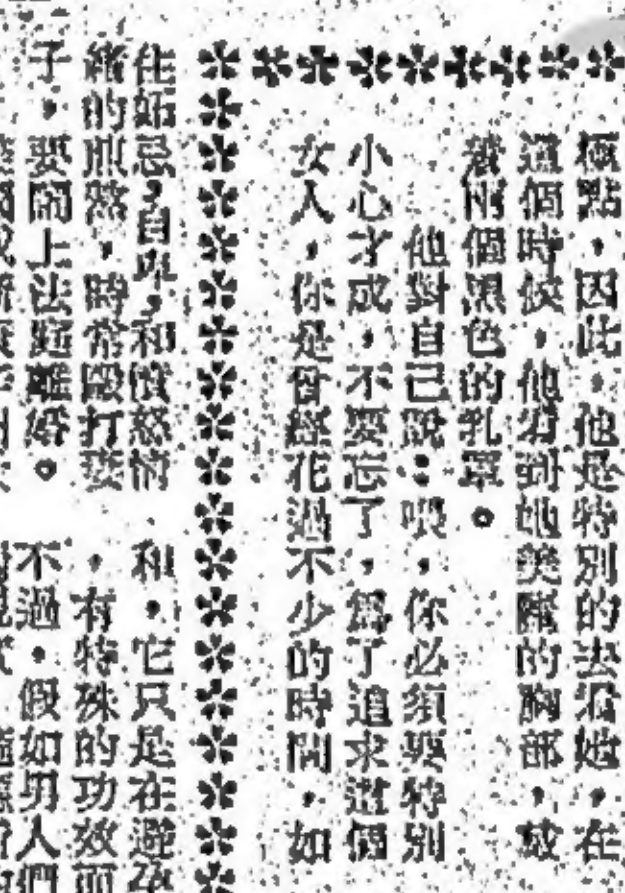 極點，因此，他是特別的去看她，在
這個時候，他看到她美麗的胸部，成
兩個黑色的乳罩。
他對自己說：喂，你必須要特別
小心才成，不要忘了，為了追求這個
女人，你是曾經花過不少的時間，如
往妬忌，自卑，和憤怒情
緒的煎熬，時常毆打妻
子，要鬧上法庭離婚。
和，它只是在避孕
，有特殊的功效而
不過，假如男人們